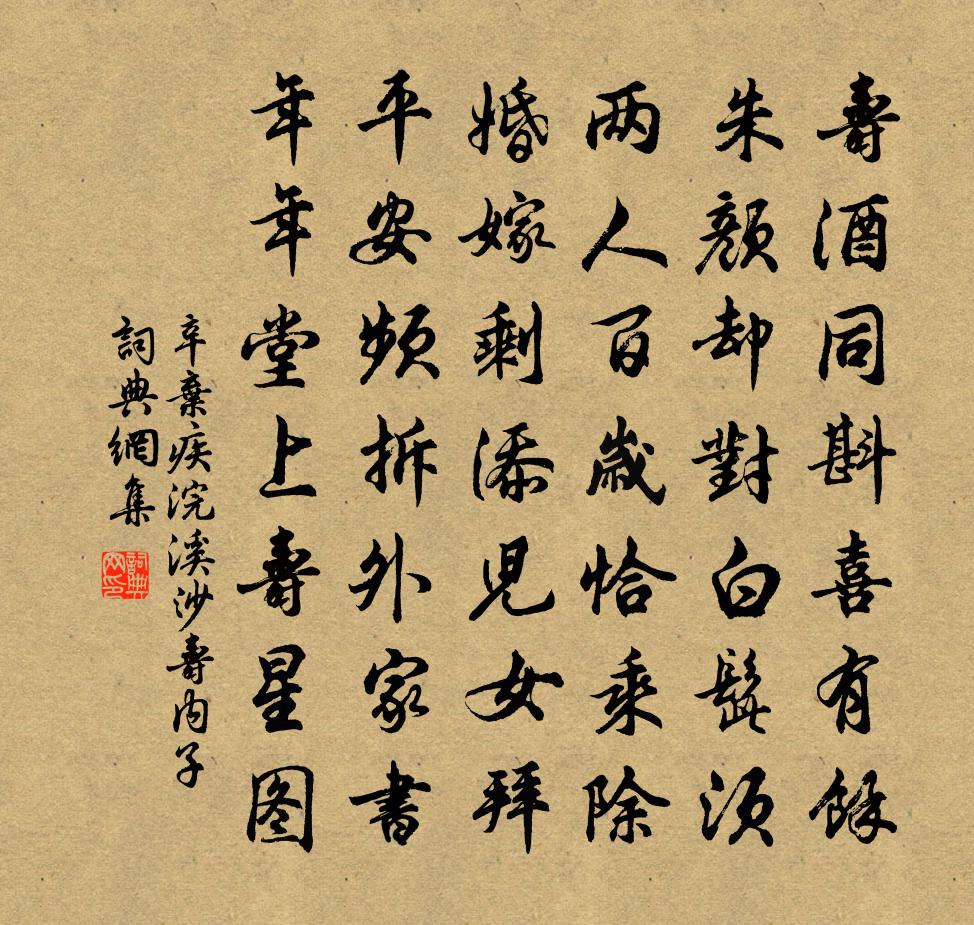 壽酒同斟喜有餘
朱顏却對白髭須
两人百歲恰乘除
婚嫁剩添兒女拜
平安頻拆外家書
年年堂上壽星图
辛棄疾浣溪沙壽内子
詞典網集
詞典网印